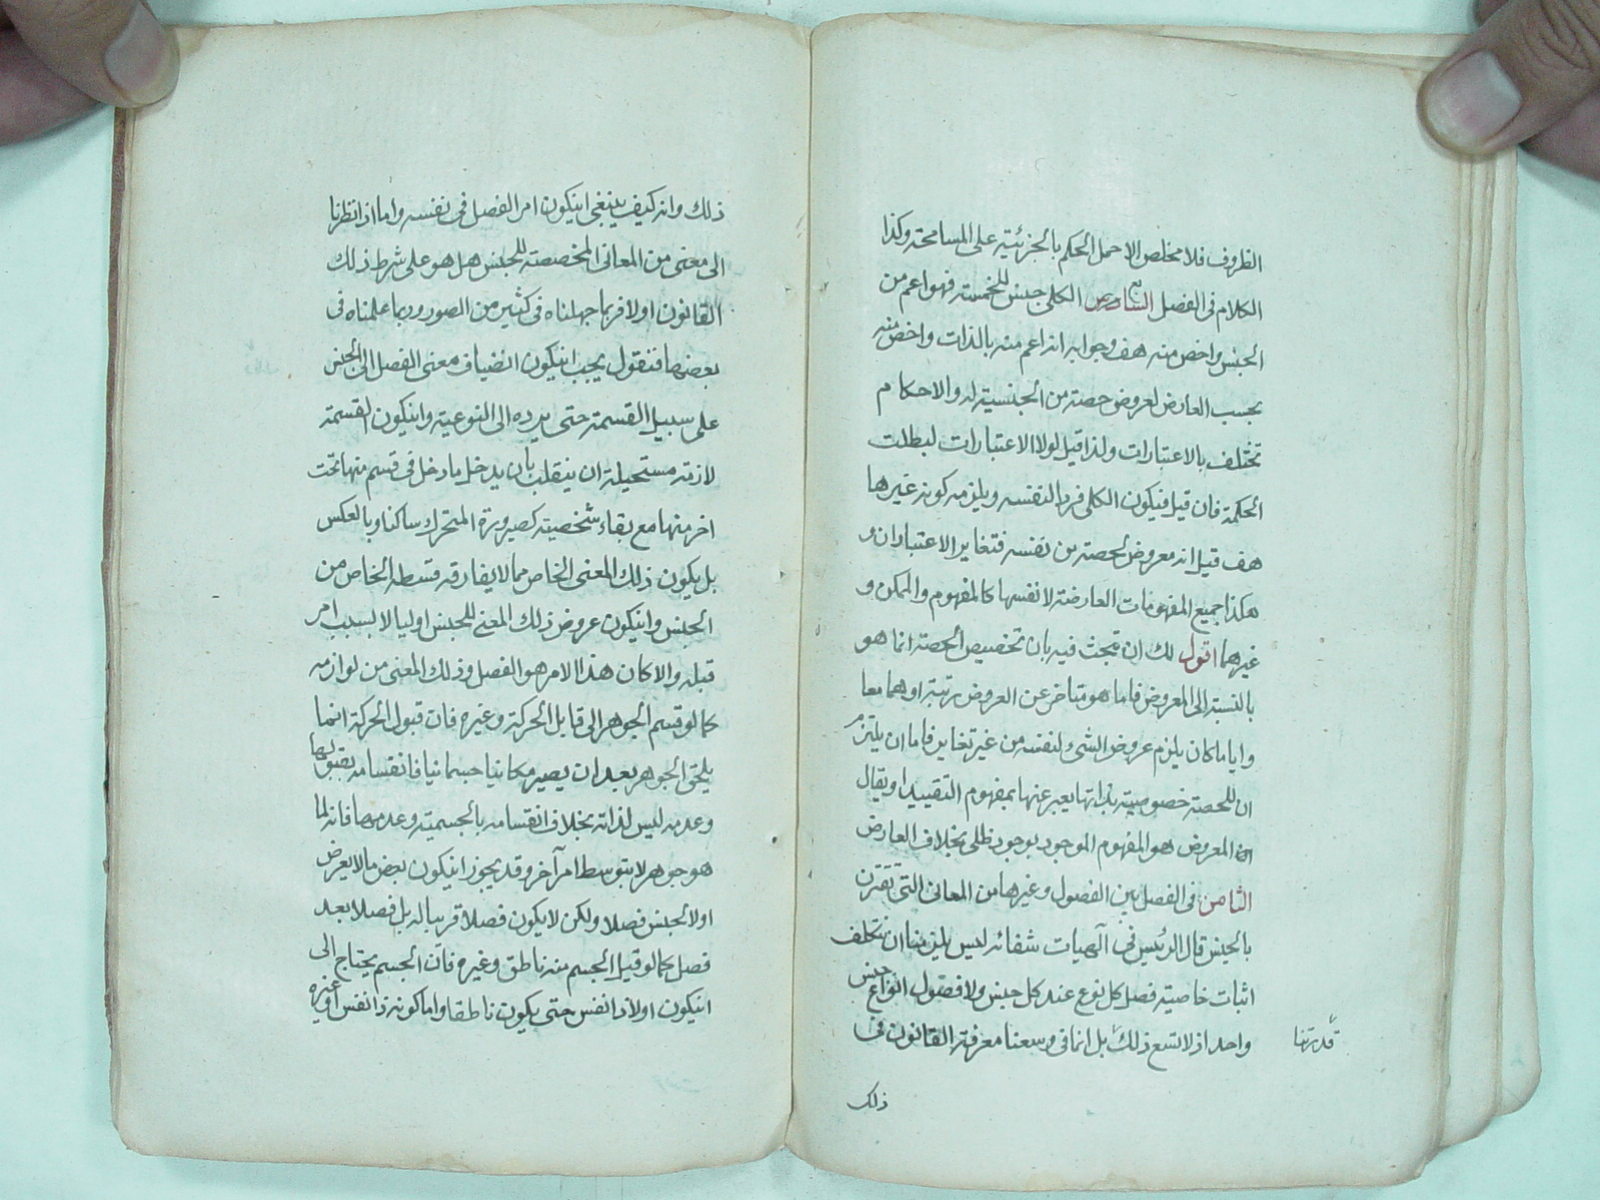 الظروف فلا مخلص الا حمل الحكم بالجزئية على المسامحة وكذا
الكلام في الفصل السابع الكلي جنس للخمسة فهو اعم من
الجنس واخص منه هف وجوابه انه اعم منه بالذات واخص منه
بحسب العارض لعروض حصته من الجنسية له والاحكام
تختلف بالاعتبارات ولذا قيل لولا الاعتبارات لبطلت
الحكمة فان قيل فيكون الكلي فردا لنفسه ويلزمه كونه غيرها
هف قيل انه معروض لحصته من نفسه فتغاير الاعتباران و
هكذا جميع المفهومات العارضة لانفسها كالمفهوم والممكن و
غيرهما اقول لك ان تبحث فيه بان تخصيص الحصة انما هو
بالنسبة الى المعروض فاما هو متاخر عن العروض رتبة او هما معا
وايا ما كان يلزم عروض الشيء لنفسه من غير تغاير فاما ان يلتزم
ان للحصة خصوصية بذاتها يعبر عنها بمفهوم التقييد او يقال
ان المعروض هو المفهوم الموجود بوجود ظلي بخلاف العارض
الثامن في الفصل بين الفصول وغيرها من المعاني التي تقترن
بالجنس قال الرئيس في آلهيات شفائه ليس يلزمنا ان نتكلف
اثبات خاصية فصل كل نوع عند كل جنس ولا فصول انواع جنس
واحد اذ لا تسع ذلك بل انما في وسعنا معرفة القانون في
قدرتنا
ذلك
ذلك وانه كيف ينبغي انيكون امر الفصل في نفسه واما اذا نظرنا
الى معنى من المعاني المخصصة للجنس هل هو على شرط ذلك
القانون اولا فربما جهلناه في كثير من الصور وربما علمناه في
بعضها فنقول يجب انيكون انضياف معنى الفصل الى الجنس
على سبيل القسمة حتى يرده الى النوعية وانيكون القسمة
لازمة مستحيلة ان ينقلب بان يدخل ما دخل في قسم منها تحت
اخر منها مع بقاء شخصيته كصيرورة المتحرك ساكنا وبالعكس
بل يكون ذلك المعنى الخاص مما لا يفارقه قسطه الخاص من
الجنس وانيكون عروض ذلك المعنى للجنس اوليا لا بسبب امر
قبله والا كان هذا الامر هو الفصل وذلك المعنى من لوازمه
كما لو قسم الجوهر الى قابل الحركة وغيره فان قبول الحركة انما
يلحق الجوهر بعد ان يصير مكانيا جسمانيا فانقسامه بقبولها
وعدمه ليس لذاته بخلاف انقسامه بالجسمية وعدمها فانه لما
هو جوهر لا بتوسط امر آخر وقد يجوز انيكون بعض ما لا يعرض
اولا لجنس فصلا ولكن لا يكون فصلا قريبا له بل فصلا بعد
فصل كما لو قيل الجسم منه ناطق وغيره فان الجسم يحتاج الى
انيكون اولا ذا نفس حتى يكون ناطقا واما كونه ذا نفس او غيره